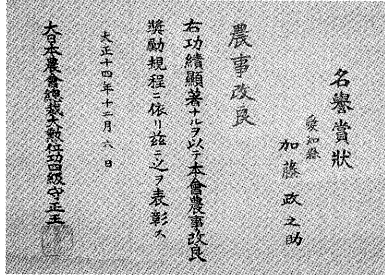 名譽賞狀
愛知縣
加藤政之助
農事改良
右功績顯著ナルヲ以テ本會農事改良
奬勵規程ニ依リ玆ニ之ヲ表彰ス
大正十四年十二月六日
大日本農會總裁大勲位功四級守正王